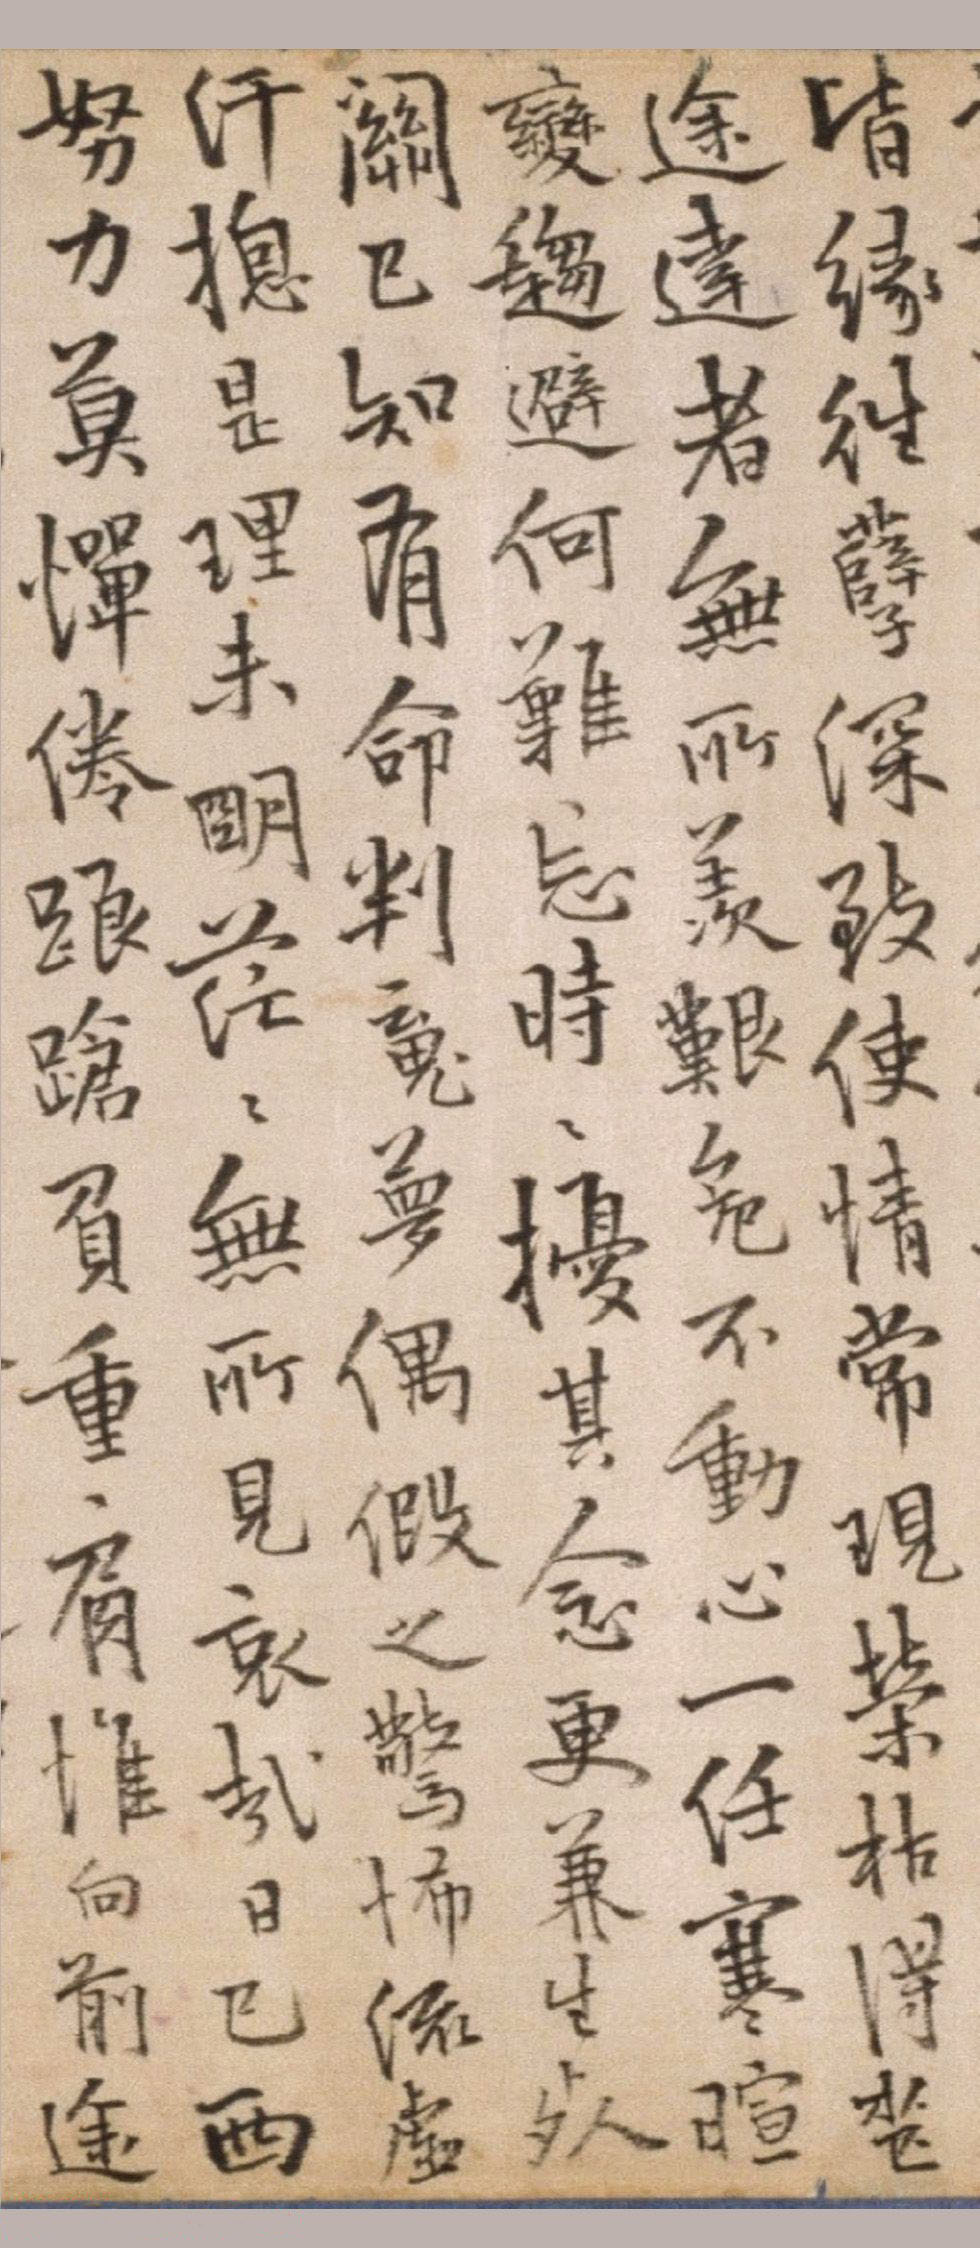 皆緣往孽深致使情常現榮枯得楚
途達者無所羨艱危不動心一任寒暄
變趨避何難忘時〻擾其念更兼生死
關已知有命判竟夢偶假之驚怖流虛
汗揔是理未明茫〻無所見哀哉日已西
努力莫憚倦踉蹌負重肩惟向前途